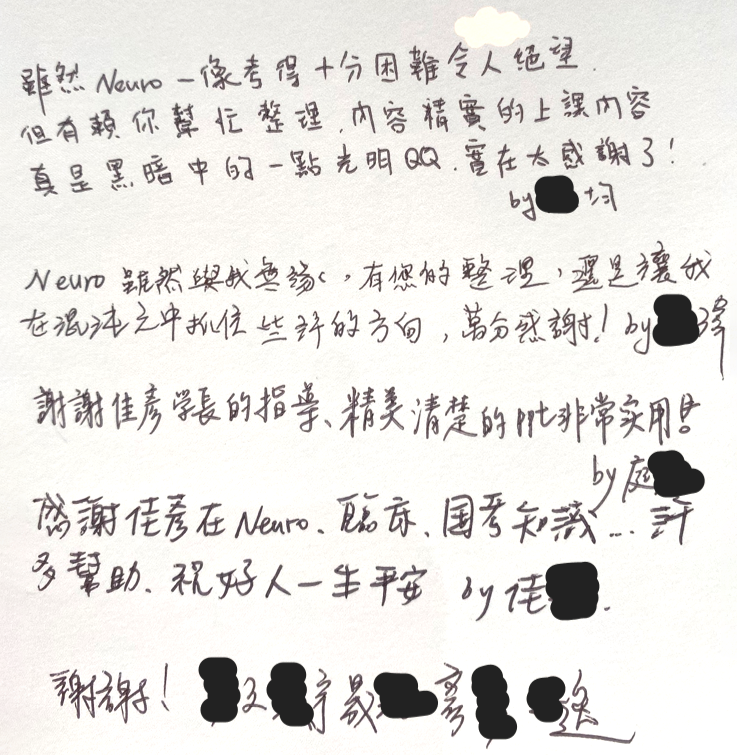 雖然 Neuro 一像考得十分困難令人絕望.
但有賴你幫忙整理.內容精實的上課內容
真是黑暗中的一點光明QQ.實在太感謝了!
by 均
Neuro 雖然與我無緣,有您的整理,還是讓我
在混沌之中抓住些許的方向,萬分感謝! by
謝謝佳彥學長的指導、精美清楚的ppt非常实用!
by 庭
感謝佳彥在 Neuro、臨床、国考知識...許
多幫助、祝好人一生平安 by 佳
謝謝!